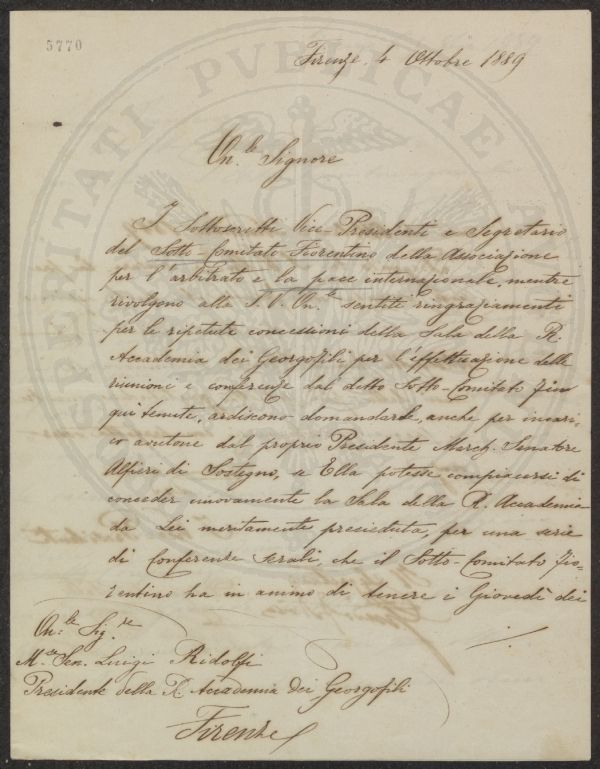 5770
Firenze, 4 Ottobre 1889
On.le Signore
I Sottoscritti Vice-Presidenti e Segretario
del Sotto-Comitato Fiorentino della Associazione
per l'arbitrato e la pace internazionale, mentre
rivolgono alla S. V. On.le sentiti ringraziamenti
per le ripetute concessioni della Sala della R.
Accademia dei Georgofili per l'effettuazione delle
riunioni e conferenze dal detto Sotto-Comitato fin
qui tenute, ardiscono domandarle, anche per incari-
co avutone dal proprio Presidente March. Senatore
Alfieri di Sostegno, se Ella potesse compiacersi di
conceder nuovamente la Sala della R. Accademia
da Lei meritamente presieduta, per una serie
di Conferenze serali, che il Sotto-Comitato Fio-
rentino ha in animo di tenere i Giovedì dei
On.le Sig.re
M.se Sen. Luigi Ridolfi
Presidente della R. Accademia dei Georgofili
Firenze
SPERITATI PVBLICAE